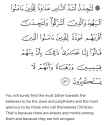 لَتَجِدَنَّ أَشَدَّ ٱلنَّاسِ عَدَٰوَةً لِّلَّذِينَ ءَامَنُوا۟
ٱلْيَهُودَ وَٱلَّذِينَ أَشْرَكُوا۟ وَلَتَجِدَنَّ أَقْرَبَهُم
مَّوَدَّةً لِّلَّذِينَ ءَامَنُوا۟ ٱلَّذِينَ
قَالُوٓا۟ إِنَّا نَصَٰرَىٰ ذَٰلِكَ بِأَنَّ مِنْهُمْ
قِسِّيسِينَ وَرُهْبَانًا وَأَنَّهُمْ لَا
يَسْتَكْبِرُونَ
You will surely find the most bitter towards the
believers to be the Jews and polytheists and the most
gracious to be those who call themselves Christian.
That is because there are priests and monks among
them and because they are not arrogant.